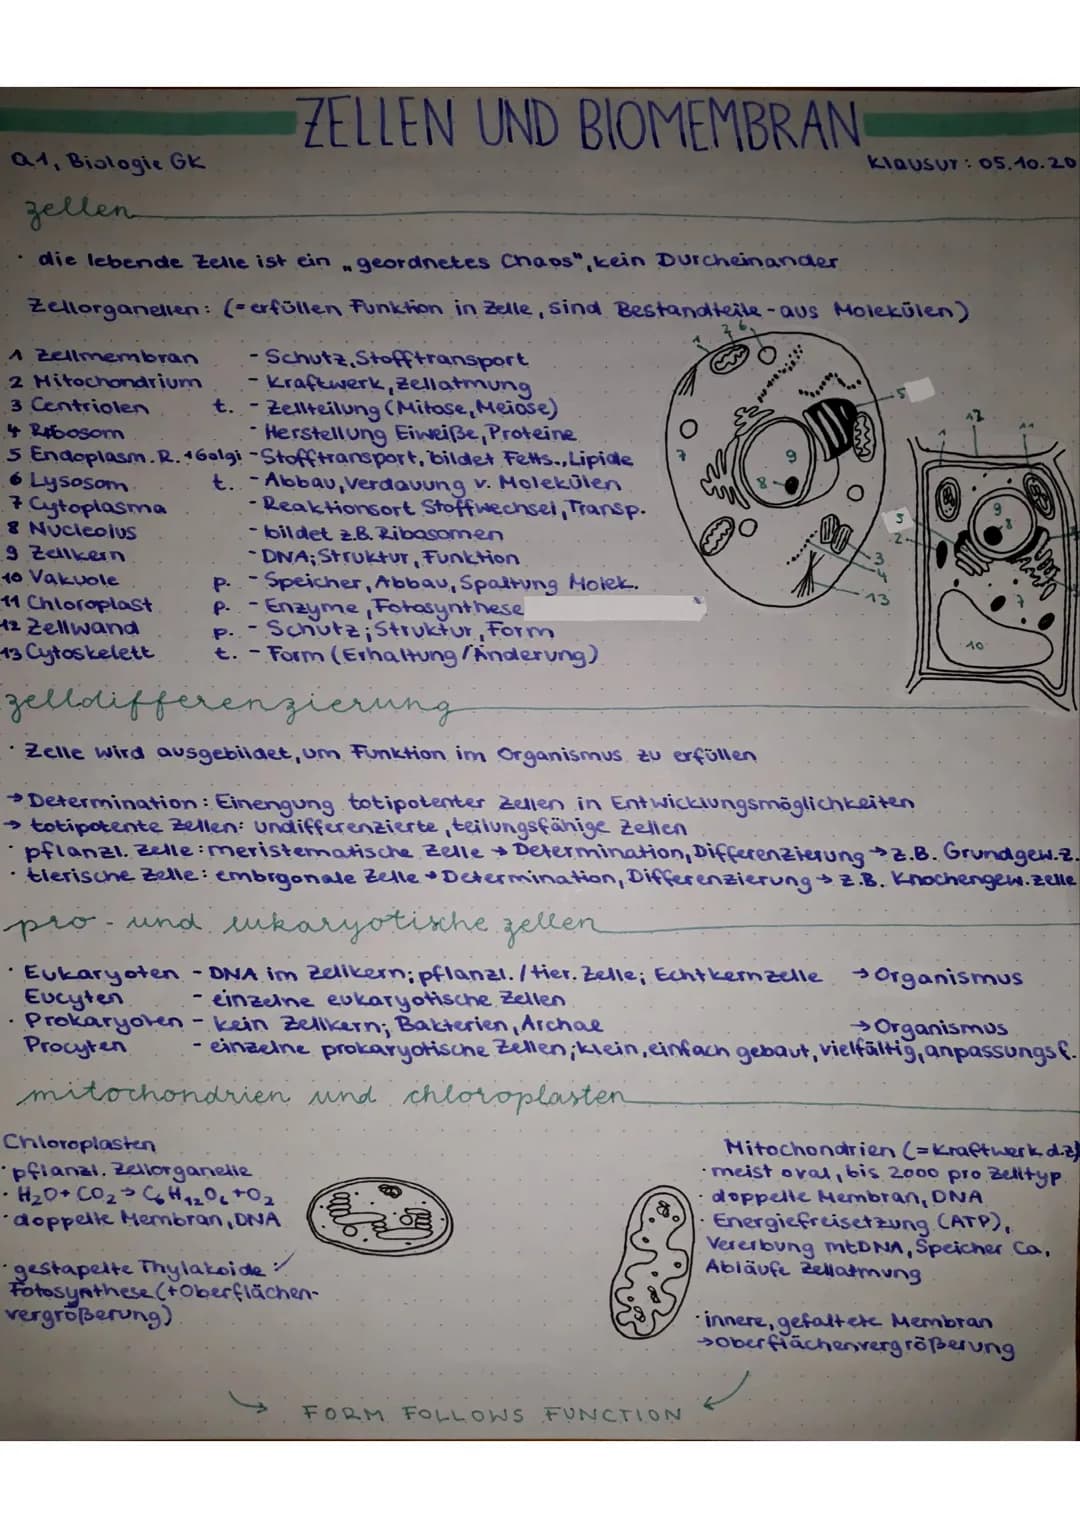 ZELLEN UND BIOMEMBRAN
Q1, Biologie GK
Klausur: 05.10.20
zellen
· die lebende Zelle ist ein „geordnetes Chaos", kein Durcheinander
Zellorganellen: (=erfüllen Funktion in Zelle, sind Bestandteile-aus Molekülen)
1 Zellmembran - Schutz, Stofftransport
2 Mitochondrium - Kraftwerk, Zellatmung
3 Centriolen t. - Zellteilung (Mitose, Meiose)
4 Ribosom - Herstellung Eiweiße, Proteine
5 Endoplasm. R. + Golgi - Stofftransport, bildet Fetts., Lipide
6 Lysosom t. - Abbau, Verdauung v. Molekülen
7 Cytoplasma - Reaktionsort Stoffwechsel, Transp.
8 Nucleolus - bildet z.B. Ribosomen
9 Zellkern - DNA; Struktur, Funktion
10 Vakuole p. - Speicher, Abbau, Spaltung Molek.
11 Chloroplast p. - Enzyme, Fotosynthese
12 Zellwand p. - Schutz; Struktur, Form
13 Cytoskelett t. - Form (Erhaltung/Änderung)
1 2 6 5 7 9 8 3 4 13
1 12 11 5 2 9 8 7 10
zelldifferenzierung
· Zelle wird ausgebildet, um Funktion im Organismus zu erfüllen
→ Determination: Einengung totipotenter Zellen in Entwicklungsmöglichkeiten
→ totipotente Zellen: undifferenzierte, teilungsfähige Zellen
· pflanzl. Zelle: meristematische Zelle → Determination, Differenzierung → z.B. Grundgew.z.
· tierische Zelle: embryonale Zelle → Determination, Differenzierung → z.B. Knochengew.zelle
pro- und eukaryotische zellen
· Eukaryoten - DNA im Zellkern; pflanzl./tier. Zelle; Echtkernzelle → Organismus
Eucyten - einzelne eukaryotische Zellen
· Prokaryoten - kein Zellkern; Bakterien, Archae → Organismus
Procyten - einzelne prokaryotische Zellen; klein, einfach gebaut, vielfältig, anpassungsf.
mitochondrien und chloroplasten
Chloroplasten
· pflanzl. Zellorganelle
· H₂O + CO₂ → C₆H₁₂O₆ + O₂
· doppelte Membran, DNA
· gestapelte Thylakoide
Fotosynthese (+Oberflächen-
vergrößerung)
Mitochondrien (=Kraftwerk d.Z)
· meist oval, bis 2000 pro Zelltyp
· doppelte Membran, DNA
· Energiefreisetzung (ATP),
Vererbung mtDNA, Speicher Ca,
Abläufe Zellatmung
· innere, gefaltete Membran
→ Oberflächenvergrößerung
FORM FOLLOWS FUNCTION